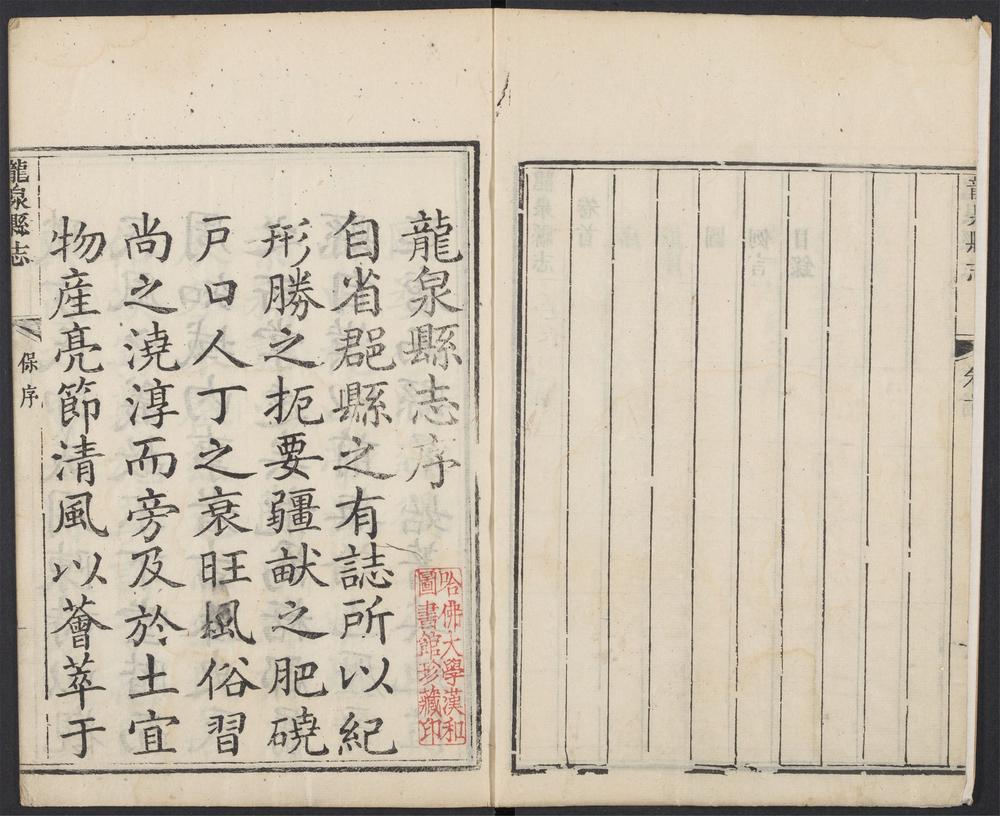 龍泉縣志
卷首
龍泉縣志序
自省郡縣之有誌所以紀
形勝之扼要疆畝之肥磽
戶口人丁之衰旺風俗習
尚之澆淳而旁及於土宜
物産亮節清風以薈萃于
龍泉縣志
保序
哈佛大學漢和
圖書館珍藏印